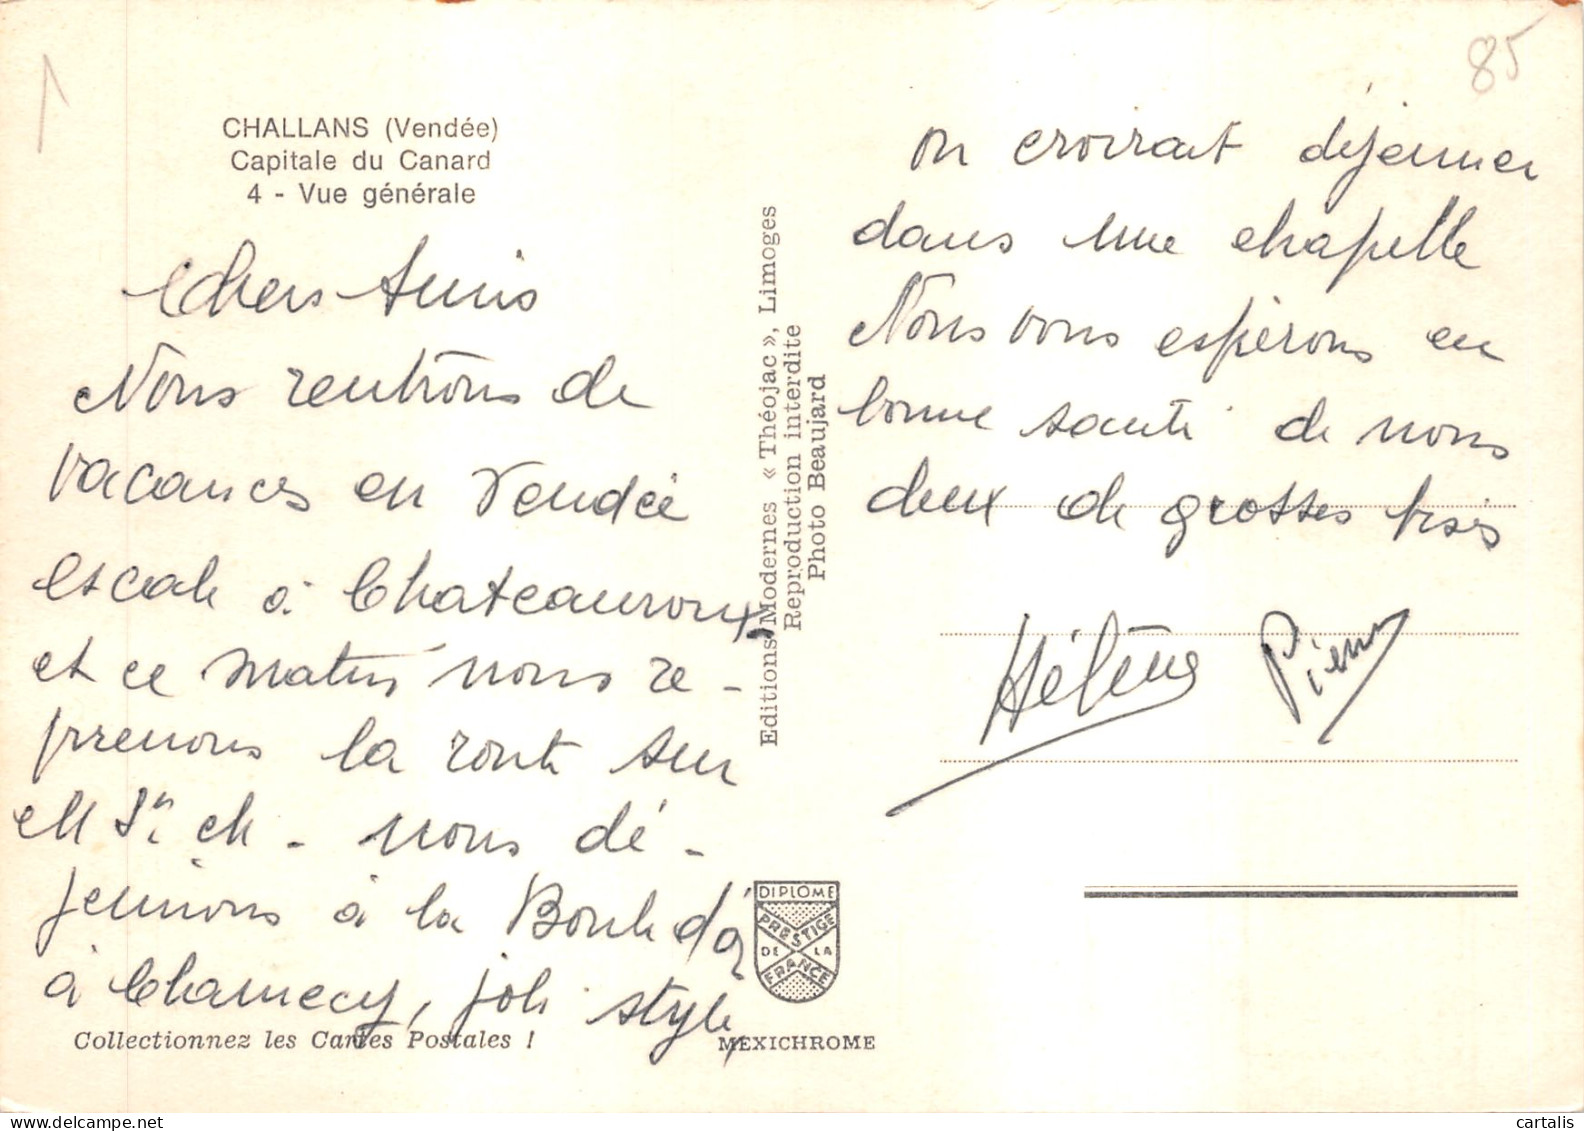 85
CHALLANS (Vendée)
Capitale du Canard
4 - Vue générale
Chers Amis
Nous rentrons de
vacances en Vendée
escale à Chateauroux
et ce matin nous re-
prenons la route sur
nous dé-
jeunons à la Boule d'or
à Chamecy, joli style,
on croirait déjeuner
dans une chapelle
Nous vous espérons en
bonne santé de nous
deux de grosses bises
Hélène Pierre
Editions Modernes « Théojac », Limoges
Reproduction interdite
Photo Beaujard
DIPLOME
PRESTIGE
DE LA
FRANCE
Collectionnez les Cartes Postales !
MEXICHROME
cartalis